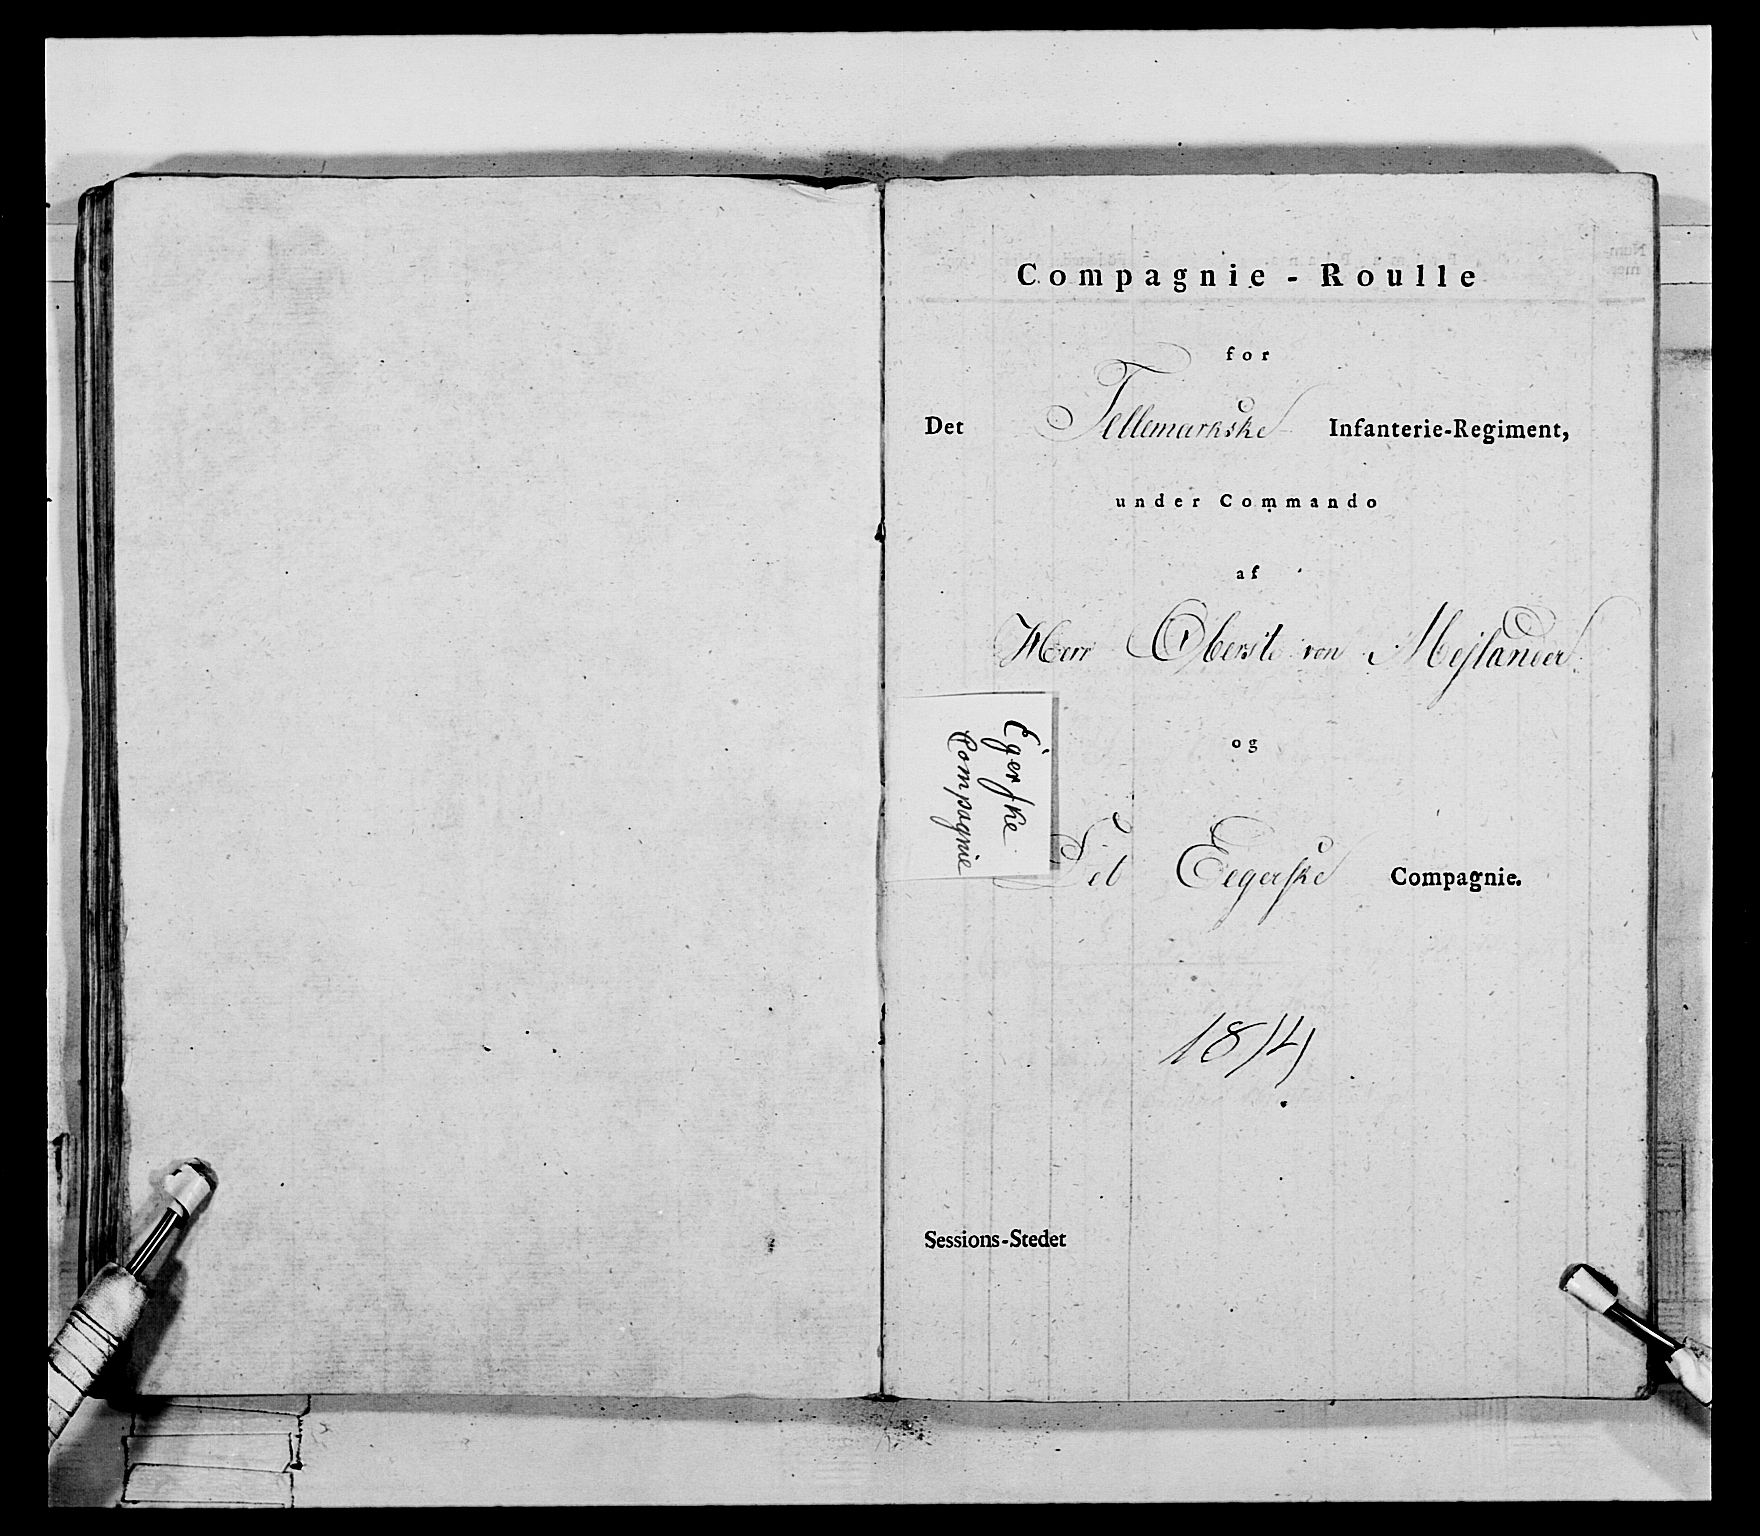 Compagnie - Roulle
for
Det Tellemarkske Infanterie-Regiment,
under Commando
af
Herr Oberste von Mejlander
og
Egerske
Compagnie
Det Eegerske Compagnie.
1814
Sessions-Stedet